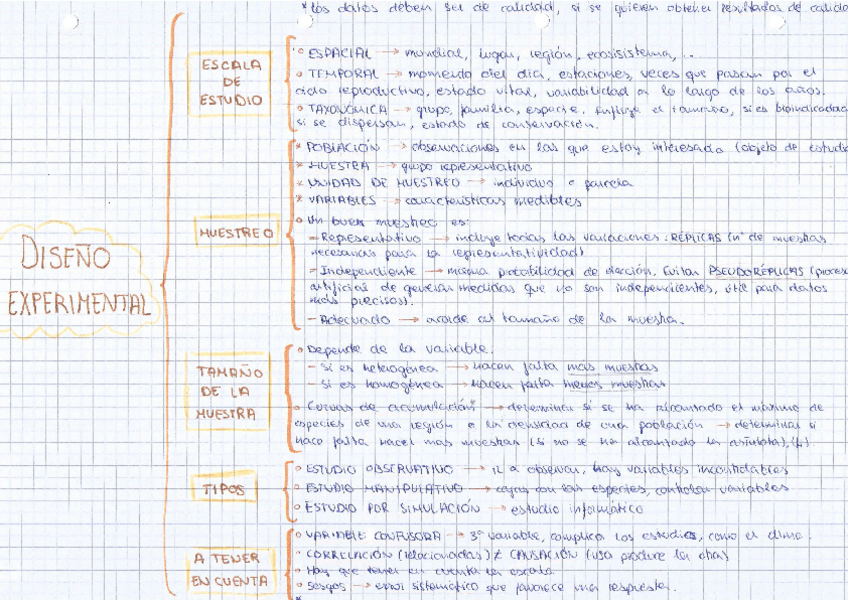 * Los datos deben ser de calidad, si se quieren obtener resultados de calida
DISEÑO
EXPERIMENTAL
ESCALA
DE
ESTUDIO
° ESPACIAL → mundial, lugar, región, ecosistema, ..
° TEMPORAL → momento del día, estaciones, veces que pasan por el
ciclo reproductivo, estado vital, variabilidad a lo largo de los años.
° TAXONÓMICA → grupo, familia, especie. Influye el tamaño, si es bioindicador
si se dispersan, estado de conservación.
MUESTREO
* POBLACIÓN → observaciones en las que estoy interesado (objeto de estud
* MUESTRA → grupo representativo
* UNIDAD DE MUESTREO → individuo o parcela
* VARIABLES → características medibles
° Un buen muestreo es:
- Representativo → incluye todas las variaciones. RÉPLICAS (nº de muestras
necesarias para la representatividad)
- Independiente → misma probabilidad de elección. Evitar PSEUDORÉPLICAS (proces
artificial de generar medidas que no son independientes, útil para datos
más precisos).
- Adecuado → acorde al tamaño de la muestra.
TAMAÑO
DE LA
MUESTRA
° Depende de la variable.
- Si es heterogénea → hacen falta más muestras
- Si es homogénea → hacen falta menos muestras
° Curvas de acumulación → determinar si se ha alcanzado el máximo de
especies de una región o la densidad de una población → determinar si
hace falta hacer más muestras (si no se ha alcanzado la asíntota)
TIPOS
° ESTUDIO OBSERVATIVO → ir a observar, hay variables incontrolables
° ESTUDIO MANIPULATIVO → cajas con las especies, controlan variables
° ESTUDIO POR SIMULACIÓN → estudio informático
A TENER
EN CUENTA
° VARIABLE CONFUSORA → 3ª variable, complica los estudios, como el clima.
° CORRELACIÓN (relacionadas) ≠ CAUSACIÓN (una produce la otra)
° Hay que tener en cuenta la escala
° Sesgos → error sistemático que favorece una respuesta.